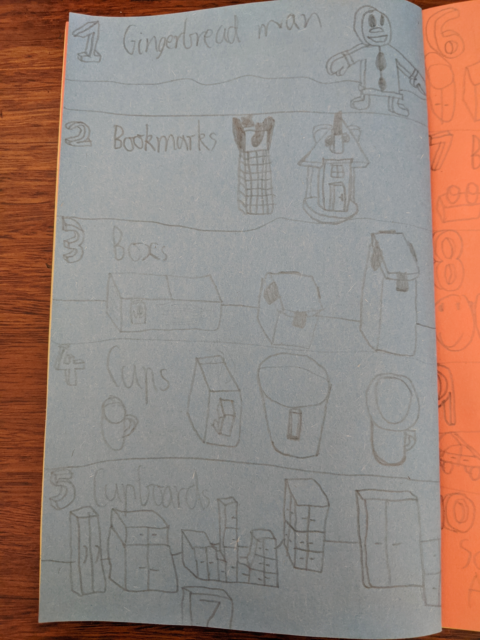 1 Gingerbread man
2 Bookmarks
3 Boxes
4 Cups
5 Cupboards
6
7 B
8
9
10